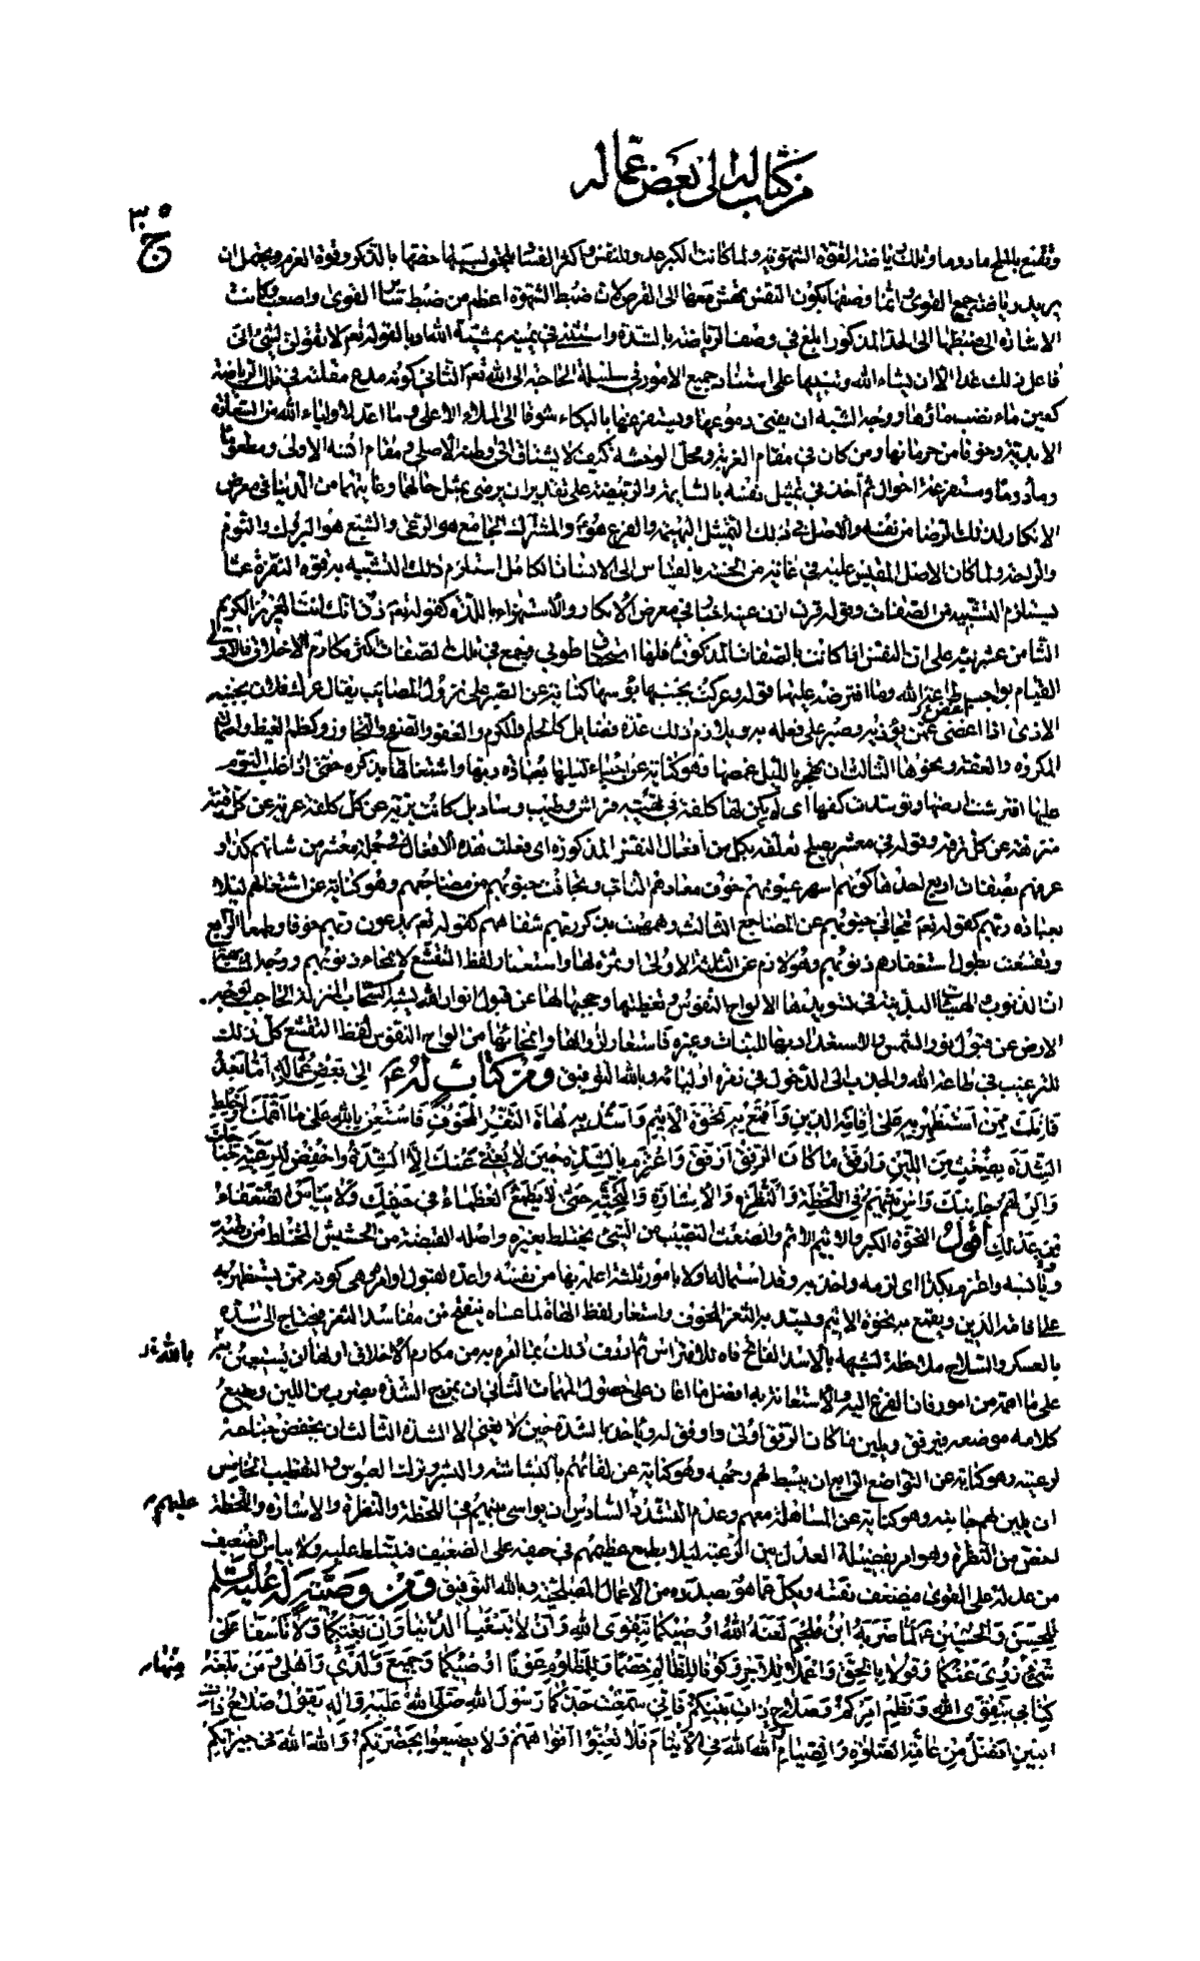 من كتاب له الى بعض عماله
ج ٣٠
وتقنع بالملح مادوما وذلك رياضة القوة الشهوية ولما كانت الكبر عدو للنفس واكثر الفسا يلحق بسببها خصها بالذكر وقوة العزم ويحتمل ان
يريد رياضة جميع القوى وانما وصفها بكون النفس تهش معها الى القرص لان ضبط الشهوة اعظم من ضبط ساير القوى واصعب وكانت
الاشارة الى ضبطها الى الحد المذكور ابلغ في وصف الرياضة بالشدة واستثنى في يمينه بمشيّة الله ادبا لقوله تعم لا تقولن لشئ انى
فاعل ذلك غدا الا ان يشاء الله وتنبيها على استناد جميع الامور في سلسلة الحاجة الى الله تعم الثانى كونه يدع مقلته في تلك الرياضة
كعين ماء نضب ماؤها ووجه الشبه ان يفنى دموعها ويستفرغها بالبكاء شوقا الى الملاء الاعلى وما اعد لاولياء الله من السعادة
الابدية وخوفا من حرمانها ومن كان في مقام الغربة ومحل الوحشة كيف لا يشتاق الى وطنه الاصلي ومقام انسه الاولى ومطعوما
ومأدوما ومستفرغة احوال ثم اخذ في تمثيل نفسه بالسائمة والربيضة على تقدير ان يرضى بمثل حالها وغايتهما من الدنيا في معرض
الانكار لذلك الرضا من نفسه والاصل في ذلك التمثيل البهيمة والفرع هو ع والمشترك الجامع هو الرعى والشبع هو البروك والنوم
والراحة ولما كان الاصل المقيس عليه في غاية من الخسة بالقياس الى الانسان الكامل استلزم ذلك التشبيه به قوة النفرة عما
يستلزم التشبيه من الصفات وقوله قرت اذن عينه اخبار في معرض الانكار والاستهزاء باللذة كقوله تعم ذق انك انت العزيز الكريم
الثامن عشر نبه على ان النفس اذا كانت بالصفات المذكورة فلها استحقاق طوبى وجمع في تلك الصفات كثر مكارم الاخلاق فالاولى
القيام بواجب طاعة الله وما افترضه عليها فقوله وعركت بجنبها بؤسها كناية عن الصبر على نزول المصائب يقال عرك فلان بجنبه
الاذى اذا اغضى عمن يؤذيه وصبر على فعله به ويلازم ذلك عدة فضايل كالحلم والكرم والعفو والصفح والتجاوز وكظم الغيظ واحتمال
المكروه والعفة ونحوها الثالث ان تهجر بالليل غمضها وهو كناية عن احياء ليلها بعبادة ربها واشتغالها بذكره حتى اذا غلب النوم
عليها افترشت ارضها وتوسدت كفها اى لم يكن لها كلفة في تهيئة فراش وطيب وساد بل كانت بريّة عن كل كلفة عرية عن كل قنية
منزهة عن كل ترفه وقوله في معشر يصلح تعلقه بكل من افعال النفس المذكورة اى فعلت هذه الافعال في جملة معشر من شانهم كذا و
عرفهم بصفات اربع احدها كونهم اسهر عيونهم خوف معادهم الثاني وتجافت جنوبهم من مضاجعهم وهو كناية عن اشتغالهم ليلا
بعبادة ربهم كقوله تعم تتجافى جنوبهم عن المضاجع الثالث وهمهمت بذكر ربهم شفاههم كقوله تعم يدعون ربهم خوفا وطمعا الرابع
وتقشعت بطول استغفارهم ذنوبهم وهو لازم عن الثلثة الاولى وثمرة لها واستعار لفظ التقشع لانمحاء ذنوبهم ووجه المشابهة
ان الذنوب والهيئات البدنية في تسويدها الالواح النفوس وتغطيتها وحجبها لها عن قبول انوار الله يشبه السحاب المتراكم الحاجب لوجه
الارض عن قبول نور الشمس والاستعداد بها للنبات وغيره فاستعار لزوالها وانمحائها من الواح النفوس لفظ التقشع كل ذلك
للترغيب في طاعة الله والجذب الى الدخول في زمرة اوليائه وبالله التوفيق ومن كتاب له ع الى بعض عماله اما بعد
فانك ممن استظهر به على اقامة الدين واقمع به نخوة الاثيم واسد به لهاة الثغر المخوف فاستعن بالله على ما اهمك واخلط
الشدة بضغث من اللين وارفق ما كان الرفق ارفق واعتزم بالشدة حين لا يغنى عنك الا الشدة واخفض للرعية جناحك
والن لهم جانبك واس بينهم في اللحظة والنظرة والاشارة والتحية حتى لا يطمع العظماء في حيفك ولا يياس الضعفاء
من عدلك اقول النخوة الكبر والاثيم الاثم والضغث النصيب من الشئ يختلط بغيره واصله القبضة من الحشيش المختلط من رطبه
ويابسه واعتزم بكذا اى لزمه واخذ به وقد استماله اولا بامور ثلثة اعلمه بها من نفسه واعده لقبول اوامره هى كونه ممن يستظهر به
على اقامة الدين ويقمع به نخوة الاثيم ويسد به الثغر المخوف واستعار لفظ اللهاة لما عساه ينفتح من مفاسد الثغر فيحتاج الى سده
بالعسكر والسلاح ملاحظة لشبهه بالاسد الفاتح فاه للافتراس ثم اردف ذلك بما امره به من مكارم الاخلاق اولها ان يستعين بالله
على ما اهمه من امور فان الفزع اليه والاستعانة به افضل ما اعان على حصول المهمات الثانى ان يمزج الشدة بضرب من اللين ويضع
كلامه موضعه فيرفق ويلين ما كان الرفق اولى واوفق له وياخذ بالشدة حين لا يغنى الا الشدة الثالث ان يخفض جناحه
لرعيته وهو كناية عن التواضع الرابع ان يبسط لهم وجهه وهو كناية عن لقائهم بالبشاشة والبشر وترك العبوس والتقطيب الخامس
ان يلين لهم جانبه وهو كناية عن المساهلة معهم وعدم التشدد عليهم السادس ان يواسى بينهم في اللحظة والنظرة والاشارة واللحظة
اخص من النظرة وهو امر بفضيلة العدل بين الرعية لئلا يطمع عظيمهم في حيفه على الضعيف فيتسلط عليه ولا يياس الضعيف
من عدله على القوى فيضعف نفسه ويكل عما هو بصدده من الاعمال المصلحية وبالله التوفيق ومن وصية له عليه السلم
للحسن والحسين ع لما ضربه ابن ملجم لعنه الله اوصيكما بتقوى الله وان لا تبغيا الدنيا وان بغتكما ولا تاسفا على
شئ منها زوى عنكما وقولا بالحق واعملا للاجر وكونا للظالم خصما وللمظلوم عونا اوصيكما وجميع ولدى واهلى ومن بلغه
كتابى بتقوى الله ونظم امركم وصلاح ذات بينكم فانى سمعت جدكما رسول الله صلى الله عليه واله يقول صلاح ذات
البين افضل من عامة الصلوة والصيام الله الله في الايتام فلا تغبوا افواههم ولا يضيعوا بحضرتكم والله الله في جيرانكم